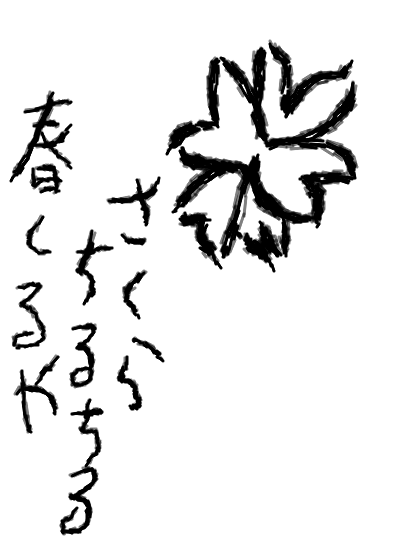 さくら
ちるちる
春くるや